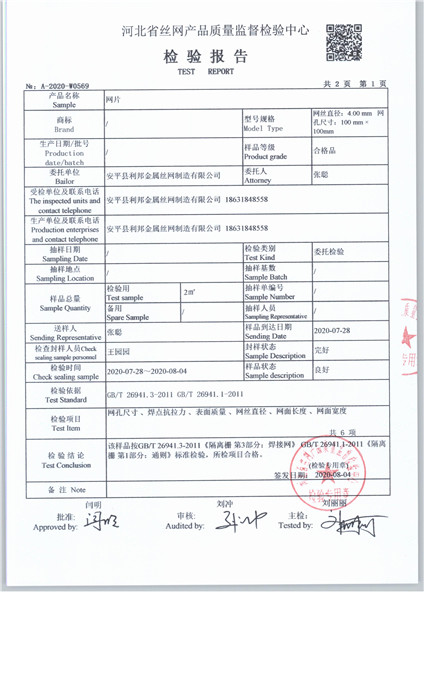 河北省丝网产品质量监督检验中心
检 验 报 告
TEST REPORT
№: A-2020-W0569 共 2 页 第 1 页
产品名称 Sample 网片
商标 Brand / 型号规格 Model Type 网丝直径: 4.00 mm 网孔尺寸: 100 mm × 100mm
生产日期/批号 Production date/batch / 样品等级 Product grade 合格品
委托单位 Bailor 安平县利邦金属丝网制造有限公司 委托人 Attorney 张聪
受检单位及联系电话 The inspected units and contact telephone 安平县利邦金属丝网制造有限公司 18631848558
生产单位及联系电话 Production enterprises and contact telephone 安平县利邦金属丝网制造有限公司 18631848558
抽样日期 Sampling Date / 检验类别 Test Kind 委托检验
抽样地点 Sampling Location / 抽样基数 Sample Batch /
样品总量 Sample Quantity 检验用 Test sample 2㎡ 抽样单编号 Sample Number /
备用 Spare Sample / 抽样人员 Sampling Representative /
送样人 Sending Representative 张聪 样品到达日期 Sending Date 2020-07-28
检查封样人员Check sealing sample personnel 王园园 封样状态 Sample Description 完好
检验时间 Check sealing sample 2020-07-28～2020-08-04 样品状态 Sample description 良好
检验依据 Test Standard GB/T 26941.3-2011 GB/T 26941.1-2011
检验项目 Test Item 网孔尺寸、焊点抗拉力、表面质量、网丝直径、网面长度、网面宽度
共 6 项
检 验 结 论 Test Conclusion 该样品按GB/T 26941.3-2011《隔离栅 第3部分: 焊接网》GB/T 26941.1-2011《隔离栅 第1部分: 通则》标准检验，所检项目合格。
(检验专用章)
签发日期: 2020-08-04
备 注 Note
闫明 刘冲 刘丽丽
批准: 审核: 主检:
Approved by: Audited by: Tested by: